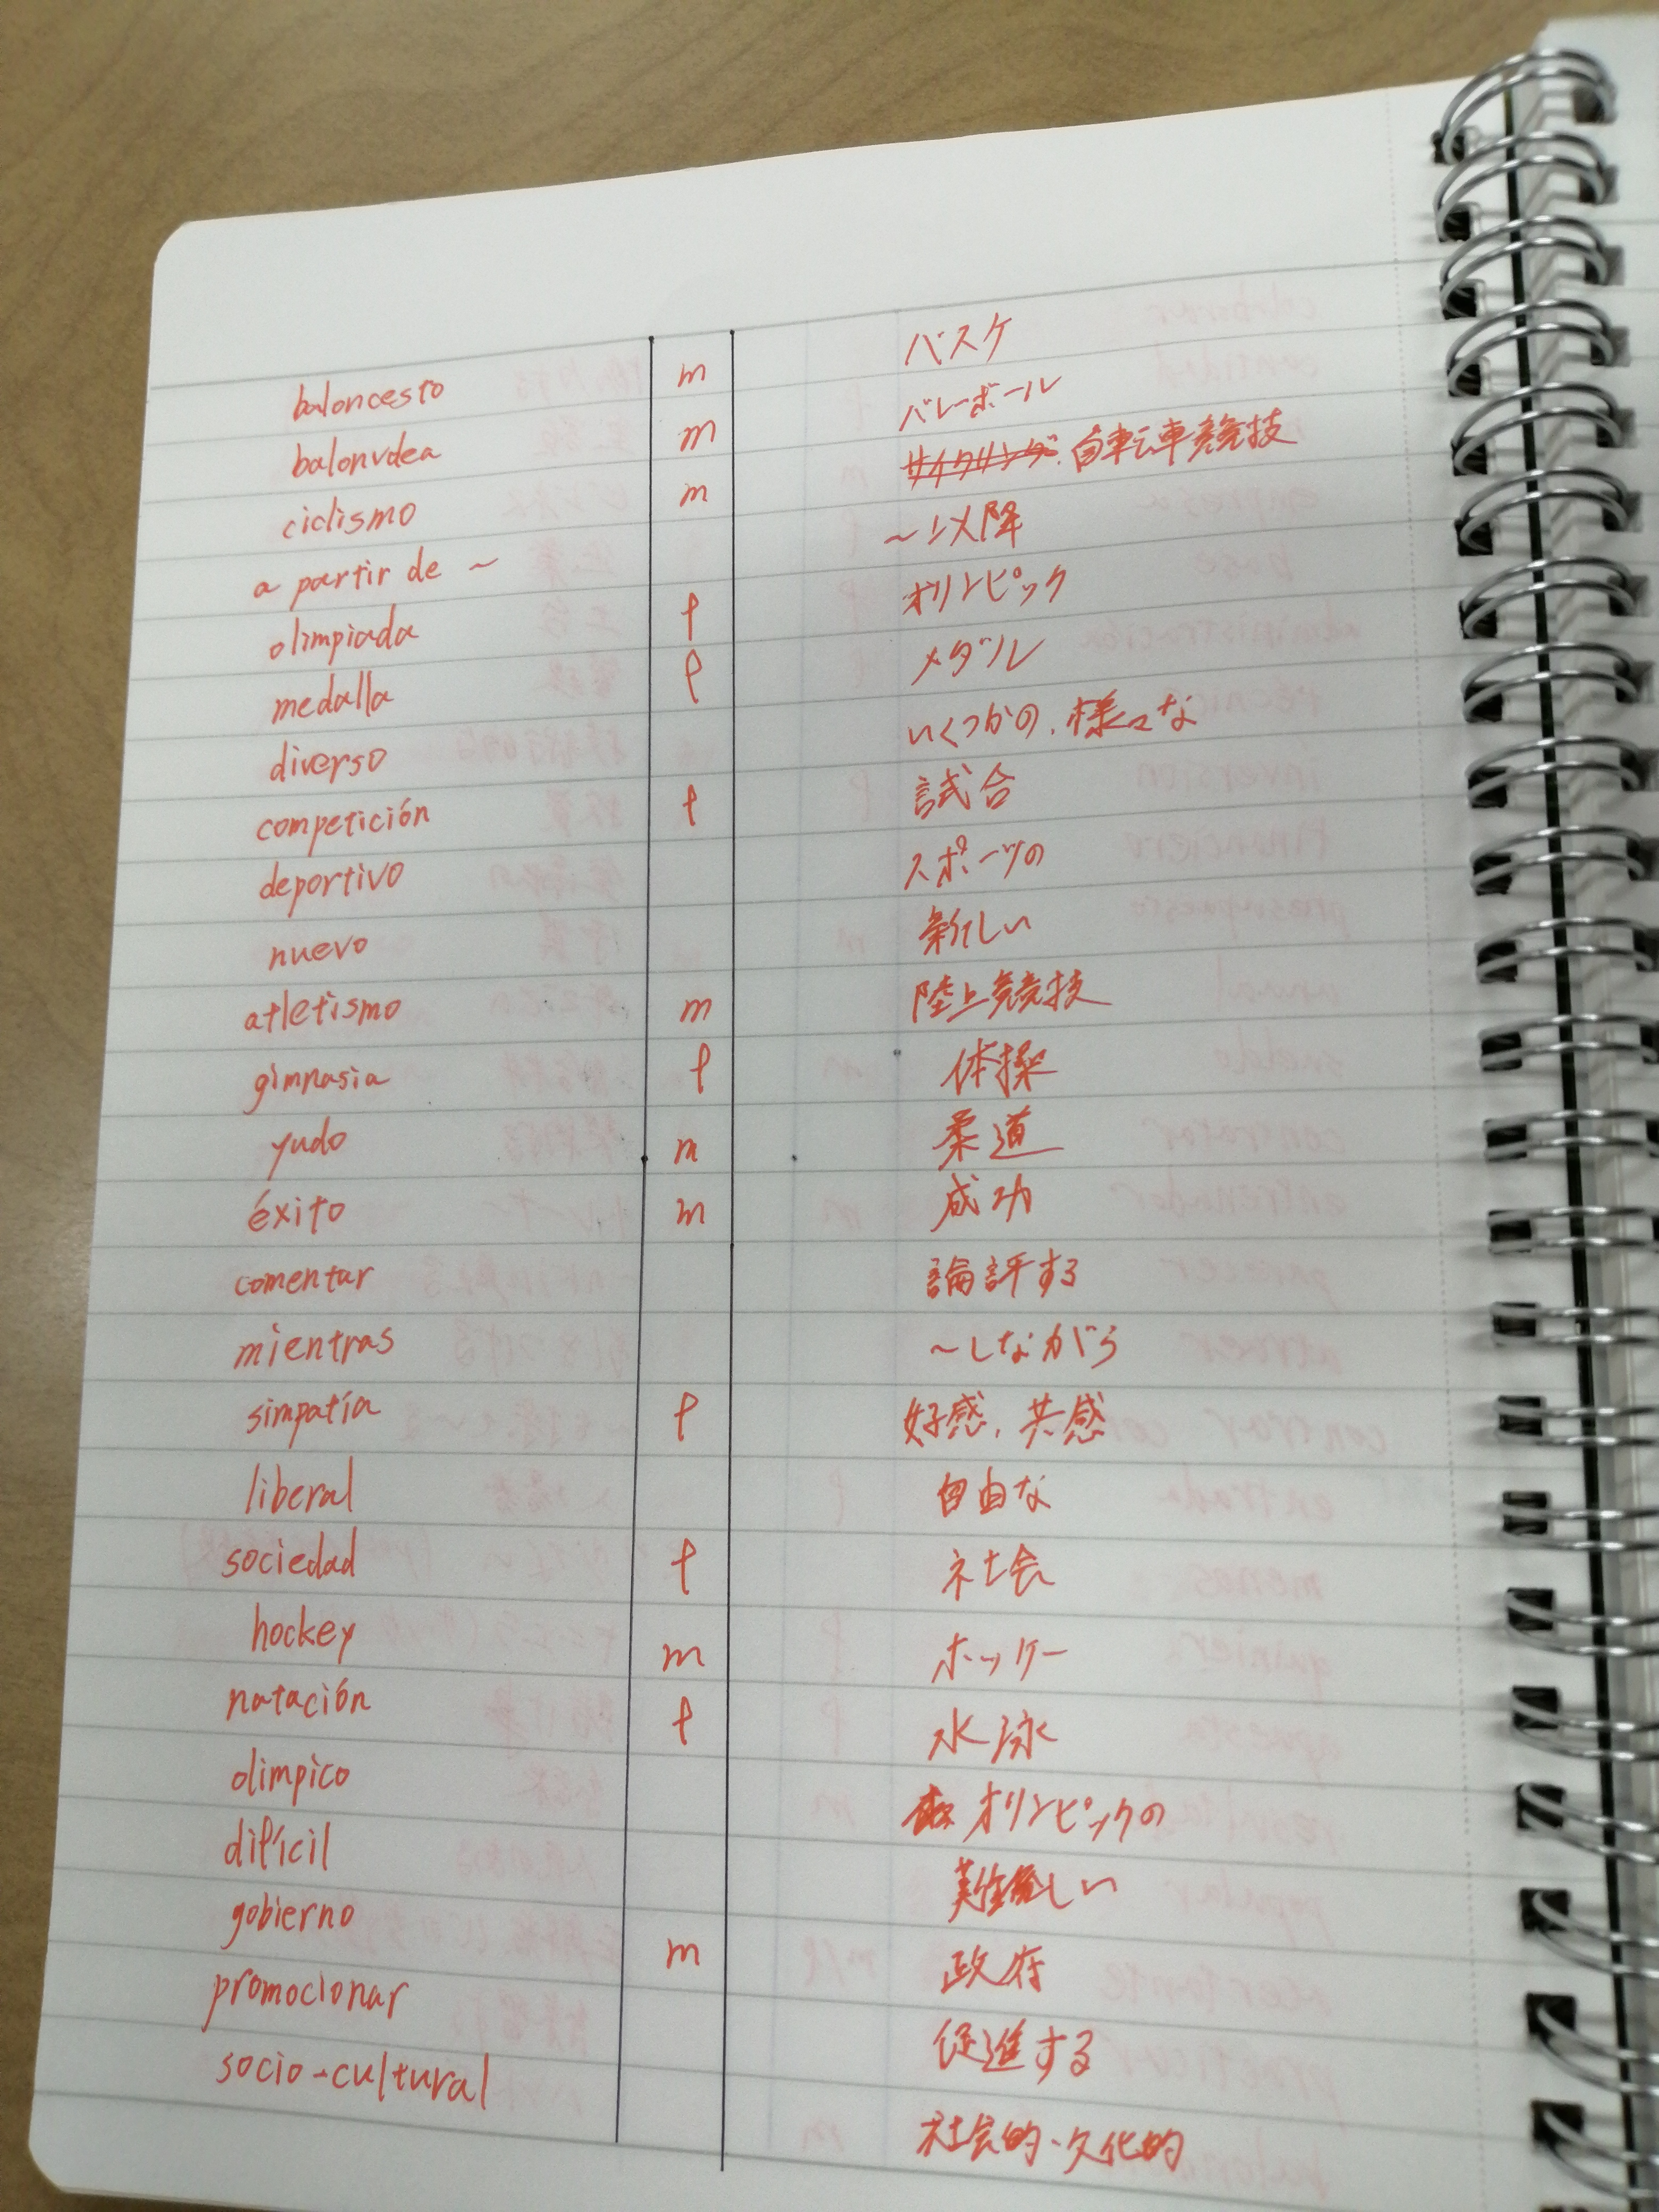 baloncesto m バスケ
balonvolea m バレーボール
ciclismo m サイクリング、自転車競技
a partir de ~ ~以降
olimpiada f オリンピック
medalla f メダル
diverso いくつかの、様々な
competición f 試合
deportivo スポーツの
nuevo 新しい
atletismo m 陸上競技
gimnasia f 体操
yudo m 柔道
éxito m 成功
comentar 論評する
mientras ~しながら
simpatía f 好感、共感
liberal 自由な
sociedad f 社会
hockey m ホッケー
natación f 水泳
olímpico オリンピックの
difícil 難しい
gobierno m 政府
promocionar 促進する
socio-cultural 社会的・文化的